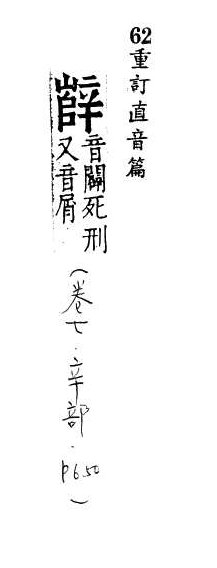 62重訂直音篇
音闢死刑
又音屑
(卷七．辛部．P650)